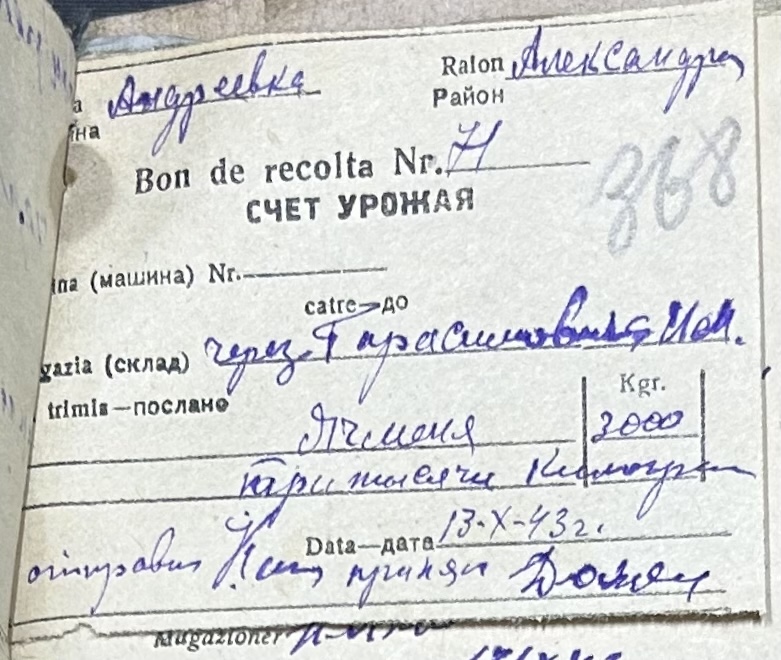 а Андреевка Raion Александр
на Район
Bon de recolta Nr. 71
368
СЧЕТ УРОЖАЯ
ina (машина) Nr.
catre—до
gazia (склад) через
trimis—послано Kgr.
Ячменя 3000
три тысячи Килограм
Data—дата 13-X-43г.
отправил принял
Magazioner